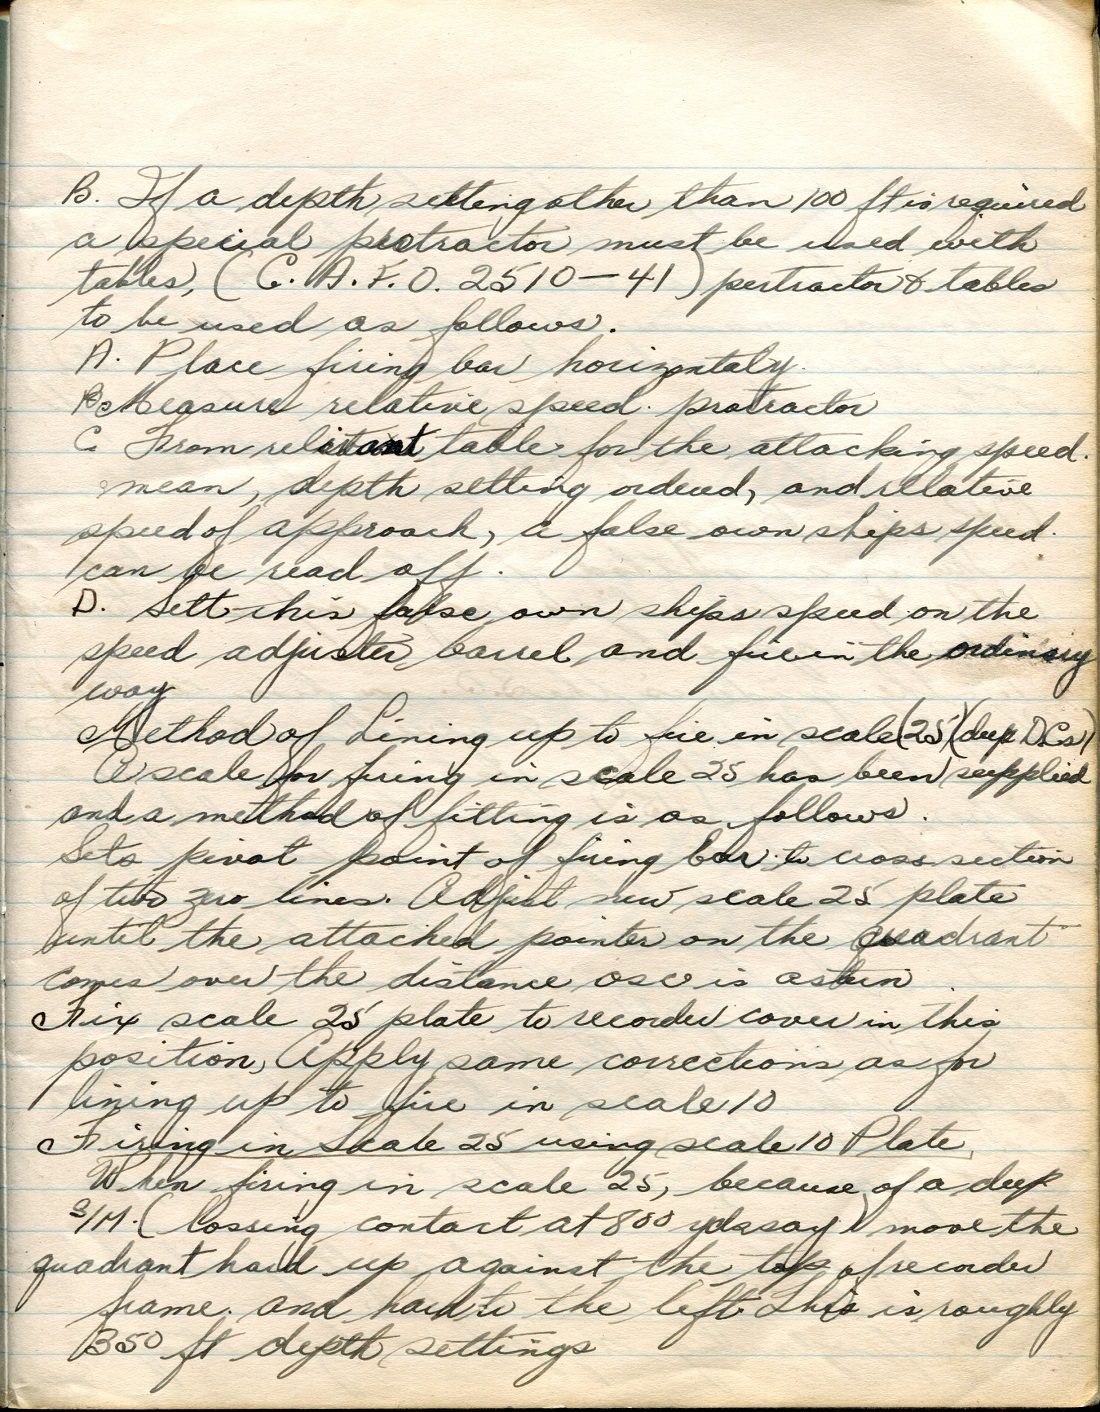 B. If a depth setting other than 100 ft is required
a special protractor must be used with
tables, (C. A. F. O. 2510 — 41) pertractor & tables
to be used as follows.
A. Place firing bar horizontaly.
B. Measure relative speed. protractor
C. From table for the attacking speed.
mean, depth setting ordered, and relative
speed of approach, a false own ships speed.
can be read off.
D. Sett this false own ships speed on the
speed adjuster, barrel and fire in the ordinary
way
Method of Lining up to fire in scale (25) (deep D.Cs)
A scale for firing in scale 25 has been supplied
and a method of fitting is as follows.
Sets pivot point of firing bar to cross section
of two zero lines. Adjust new scale 25 plate
until the attached pointer on the quadrant
comes over the distance osc is astern.
Fix scale 25 plate to recorder cover in this
position, Apply same corrections as for
lining up to fire in scale 10
Firing in Scale 25 using scale 10 Plate,
When firing in scale 25, because of a deep
S/M. (lossing contact at 800 yds say) move the
quadrant hard up against the top of recorder
frame. and hard to the left. This is roughly
350 ft depth settings